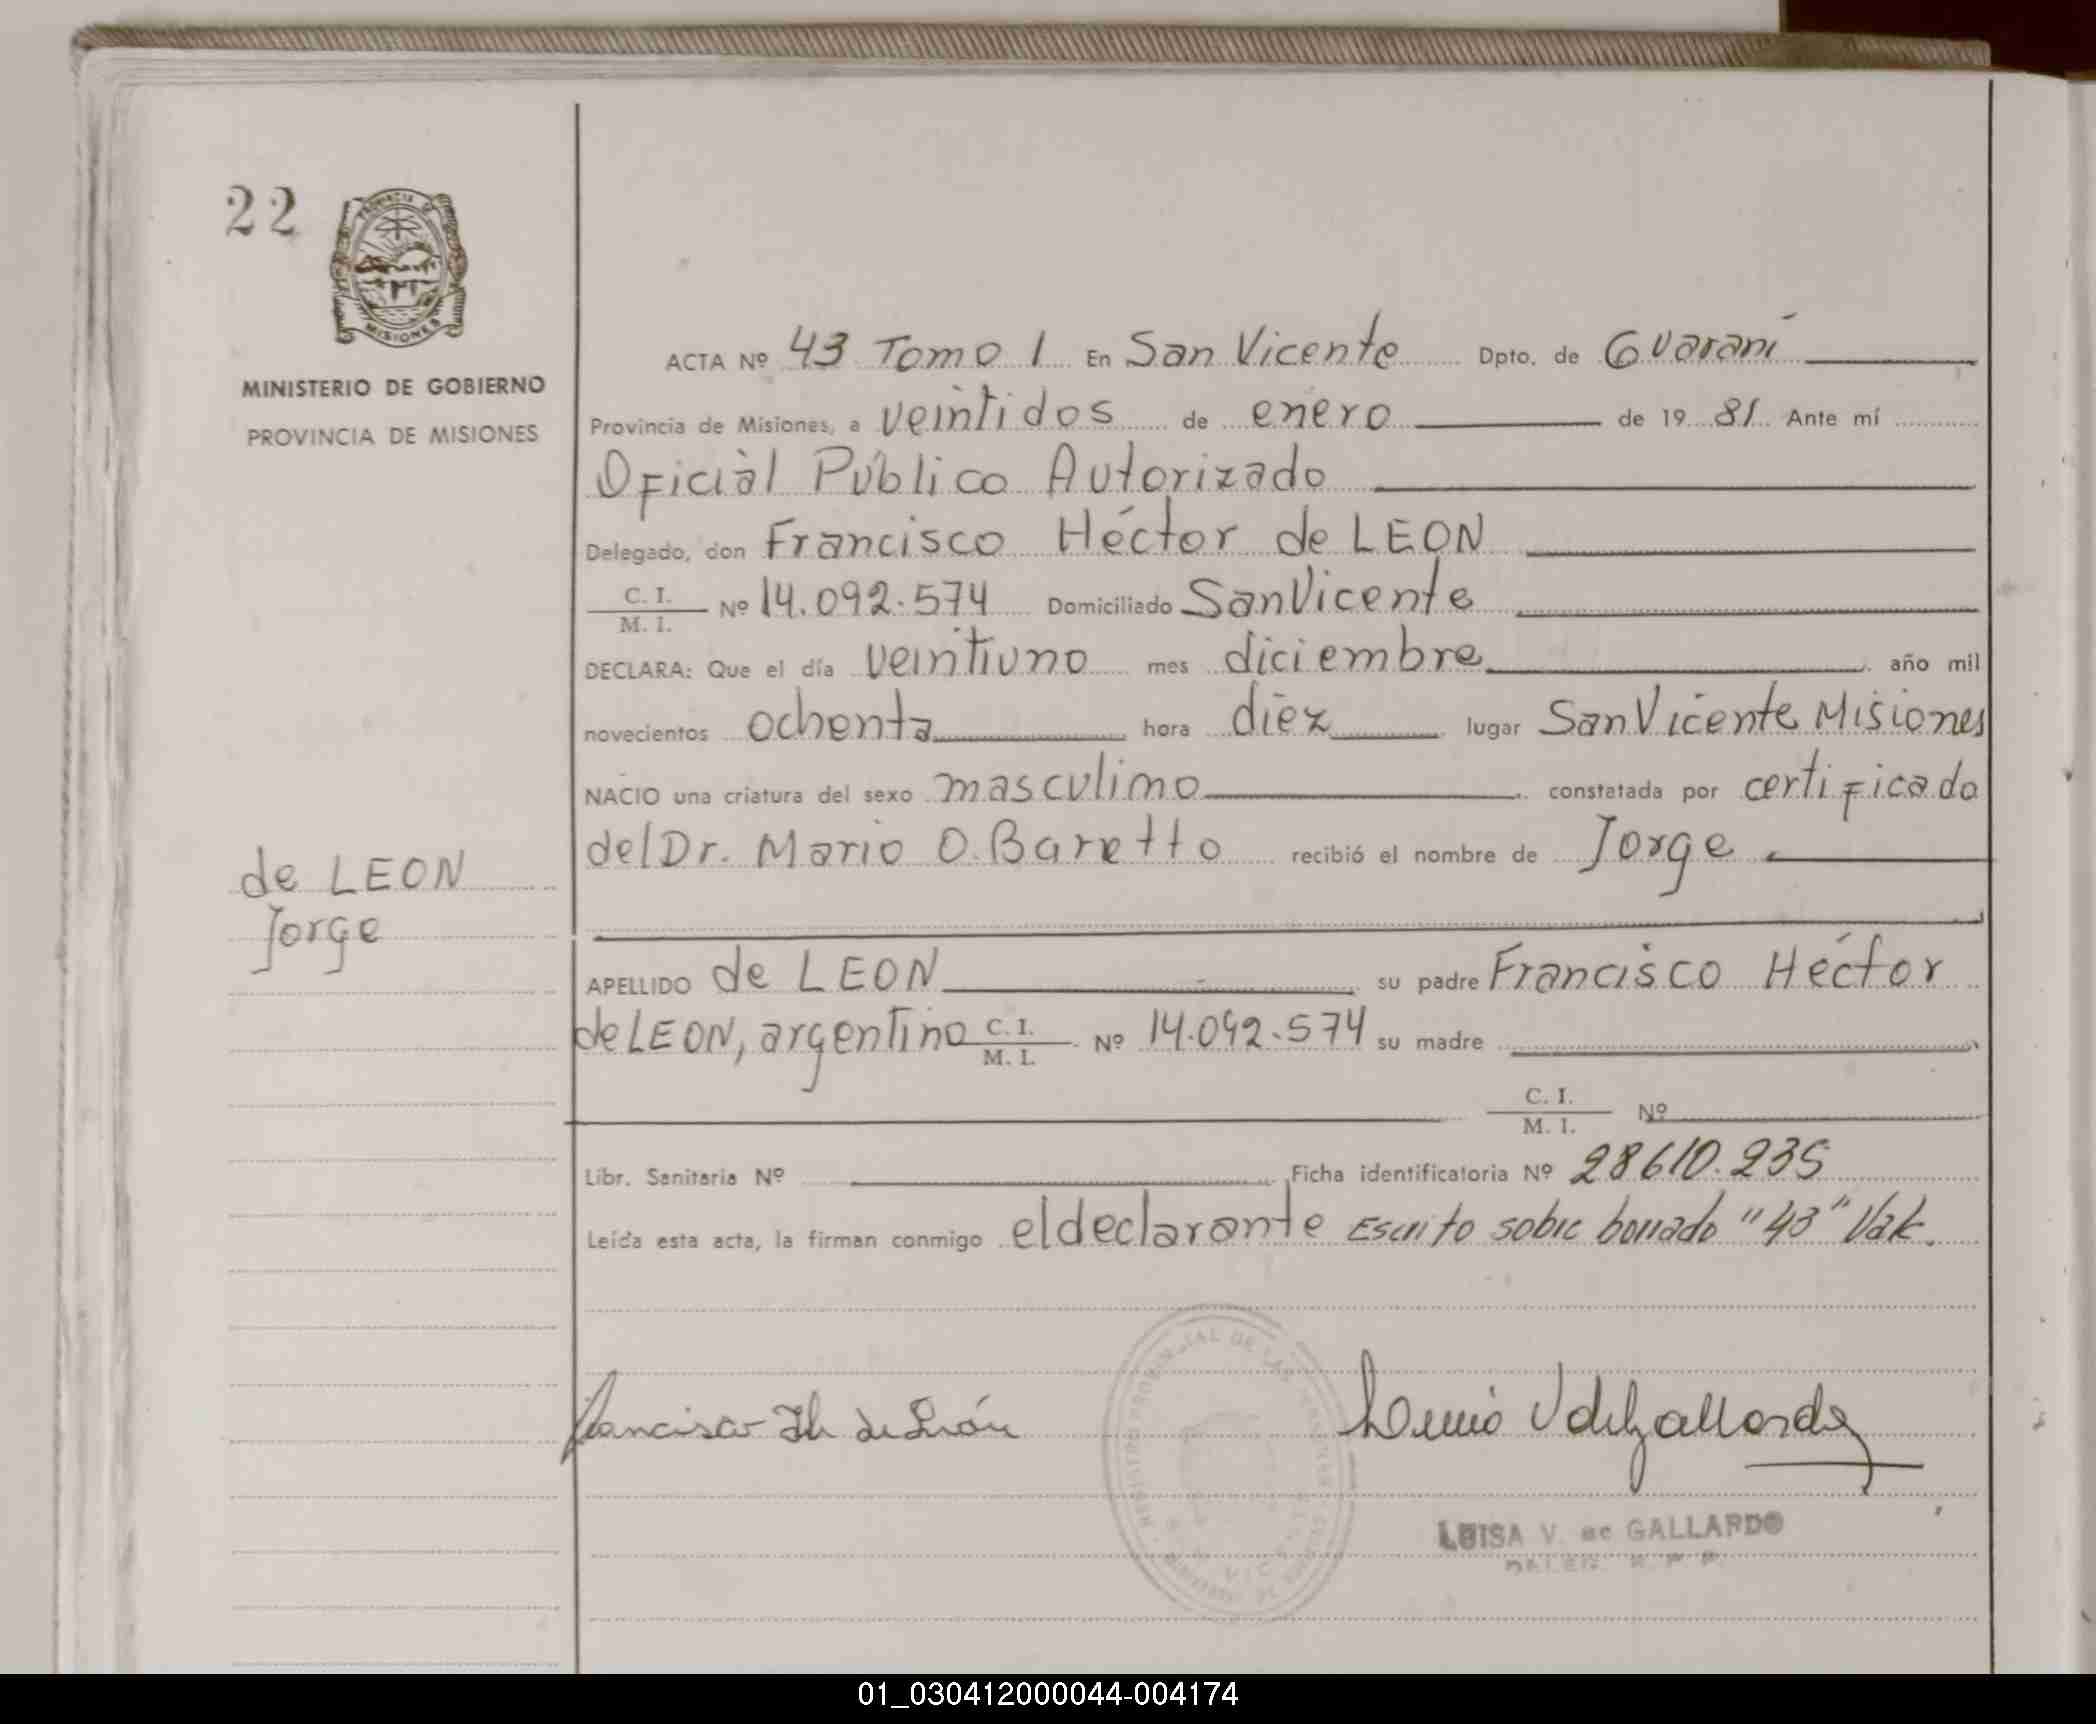 22
PROVINCIA DE
MISIONES
MINISTERIO DE GOBIERNO
PROVINCIA DE MISIONES
ACTA Nº 43 Tomo 1 En San Vicente Dpto. de Guaraní
Provincia de Misiones, a veintidos de enero de 19 81 Ante mí
Oficial Público Autorizado
Delegado, don Francisco Héctor de LEON
C. I.
M. I. Nº 14.092.574 Domiciliado San Vicente
DECLARA: Que el día veintiuno mes diciembre año mil
novecientos ochenta hora diez lugar San Vicente Misiones
NACIO una criatura del sexo masculino constatada por certificado
del Dr. Mario O. Baretto recibió el nombre de Jorge
de LEON
Jorge
APELLIDO de LEON su padre Francisco Héctor
de LEON, argentino C. I.
M. I. Nº 14.092.574 su madre
C. I.
M. I. Nº
Libr. Sanitaria Nº Ficha identificatoria Nº 28610.235
Leída esta acta, la firman conmigo el declarante Escrito sobre borrado "43" Vale.
Francisco H. de León
LUISA V. de GALLARDO
01_030412000044-004174